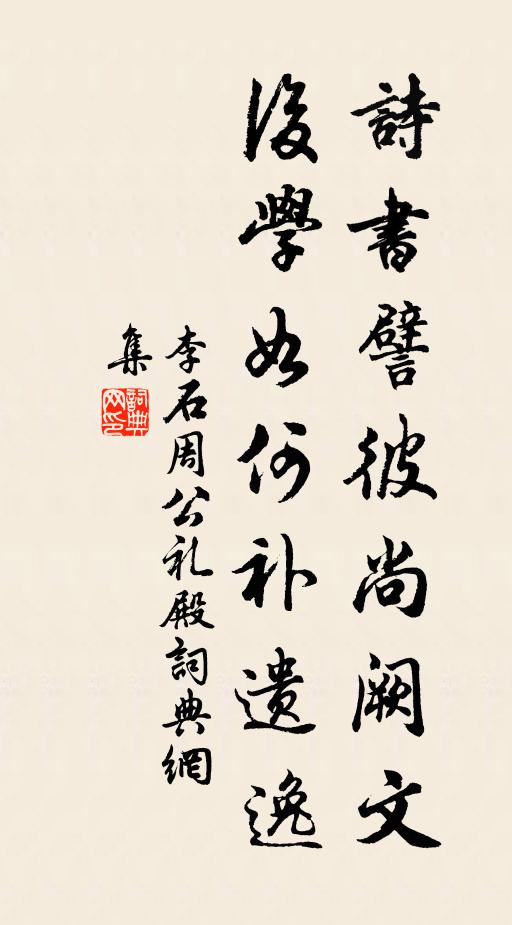 詩書譬彼尚阙文
後學如何补遗逸
李石周公礼殿詞典網
集
詞典網印